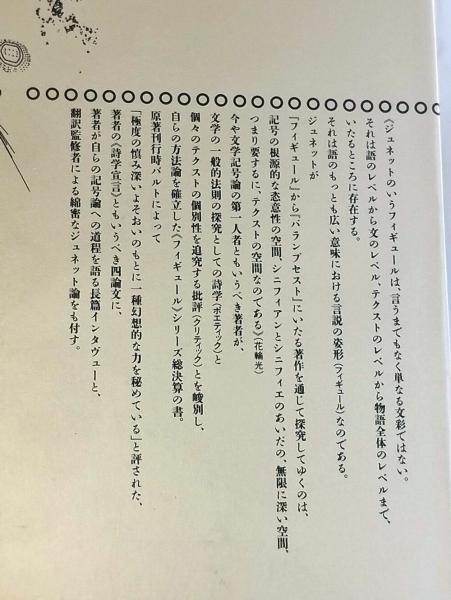 《ジュネットのいうフィギュールは、言うまでもなく単なる文彩ではない。
それは語のレベルから文のレベル、テクストのレベルから物語全体のレベルまで、
いたるところに存在する。
それは語のもっとも広い意味における言説の姿形(フィギュール)なのである。
ジュネットが
『フィギュール』から『パランプセスト』にいたる著作を通じて探究してゆくのは、
記号の根源的な恣意性の空間、シニフィアンとシニフィエのあいだの、無限に深い空間、
つまり要するに、テクストの空間なのである》(花輪光)
今や文学記号論の第一人者ともいうべき著者が、
文学の一般的法則の探究としての詩学(ポエティック)と
個々のテクストの個別性を追究する批評(クリティック)とを峻別し、
自らの方法論を確立した《フィギュール》シリーズ総決算の書。
原著刊行時バルトによって
「極度の慎み深いよそおいのもとに一種幻想的な力を秘めている」と評された、
著者の《詩学宣言》ともいうべき四論文に、
著者が自らの記号論への道程を語る長篇インタヴューと、
翻訳監修者による綿密なジュネット論をも付す。